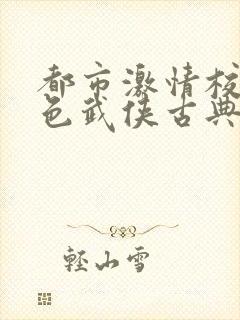 都市激情校
色武侠古典
轻山雪